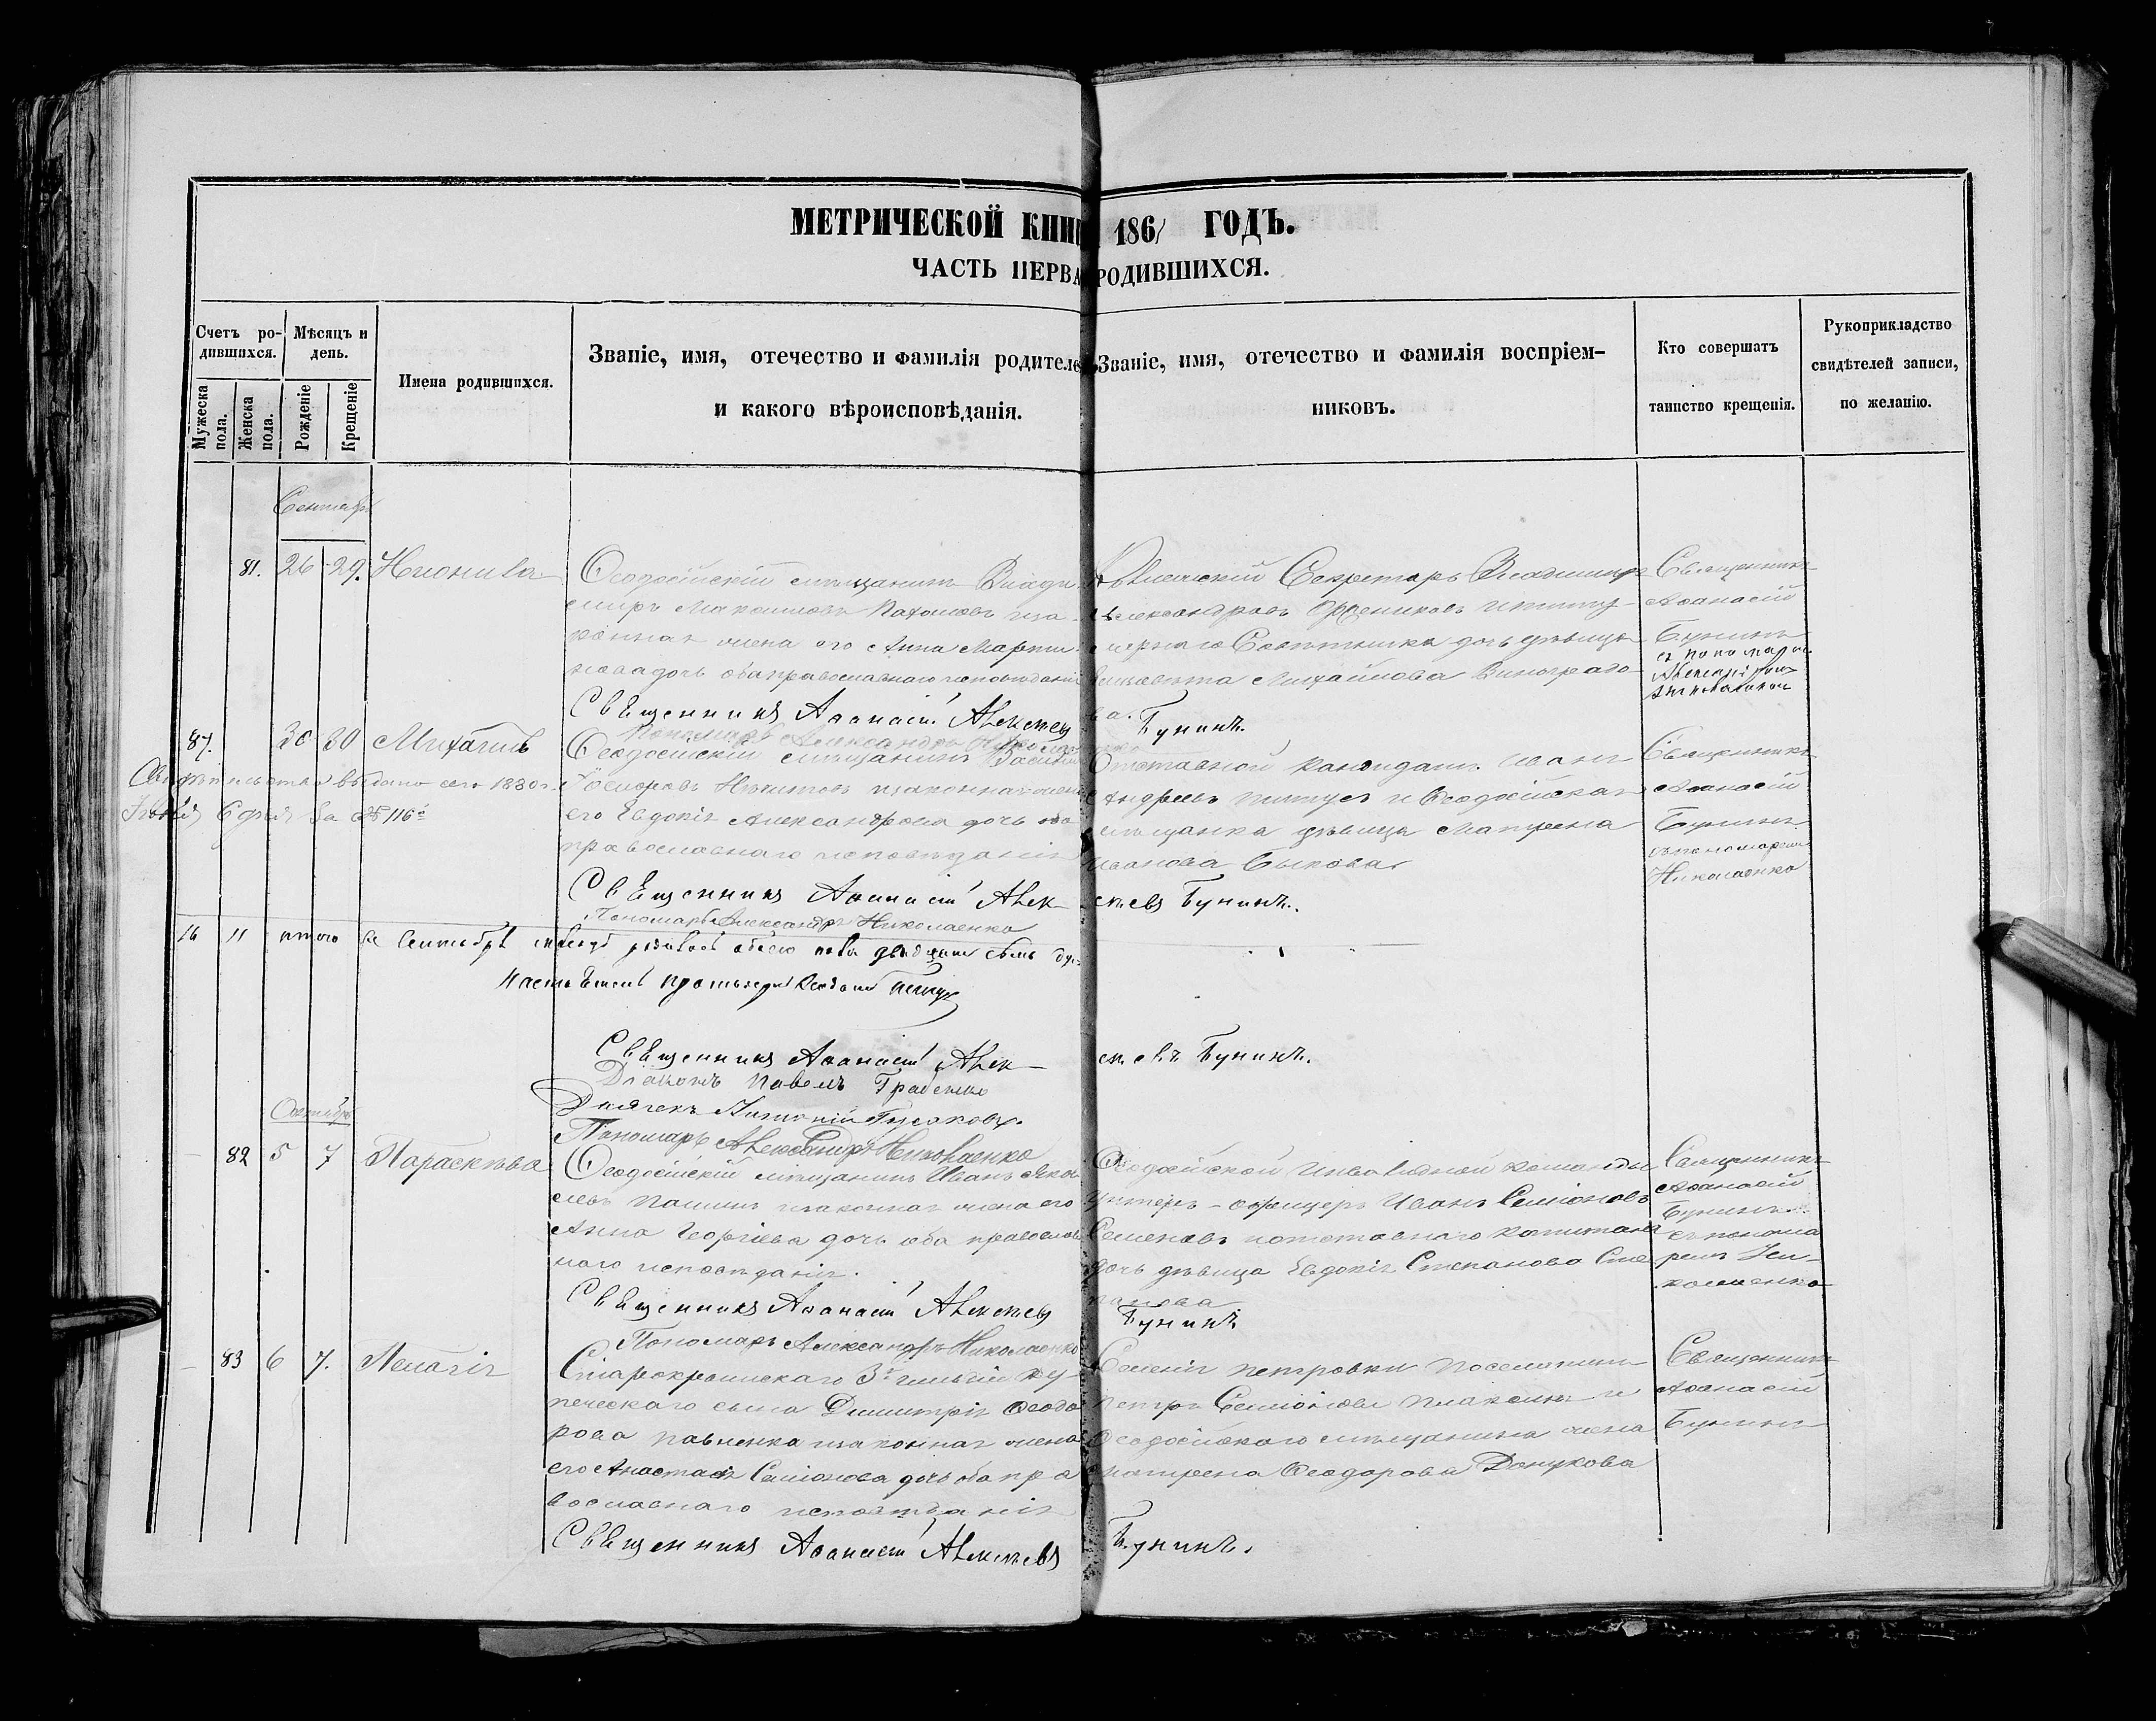 МЕТРИЧЕСКОЙ КНИГ 1861 ГОДЪ.
ЧАСТЬ ПЕРВА РОДИВШИХСЯ.
Счетъ ро-
дившихся.
Мужеска
пола.
Женска
пола.
Мѣсяцъ и
день.
Рожденіе
Крещеніе
Имена родившихся.
Званіе, имя, отечество и фамилія родителе
и какого вѣроисповѣданія.
Званіе, имя, отечество и фамилія воспріем-
никовъ.
Кто совершатъ
таинство крещенія.
Рукоприкладство
свидѣтелей записи,
по желанію.
Сентябрь
81. 26 29.
Ѳеодосійскій мѣщанинъ Влади
миръ Максимовъ Пахомовъ иза
конная жена его Анна Марти
нова дочь оба православнаго исповѣданія
Священникъ Аѳанасій Алексѣев
Секретарь Владимиръ
Александровъ
Совѣтника дочь дѣвица
Елисавета Михайлова Виноградо
ва.
Бунинъ.
Священникъ
Аѳанасій
Бунинъ
съ пономаре
87. 30 30 Михаилъ
Свидѣтельство выдано сего 1880 г.
6 дня за № 116
Пономарь Александръ Николаенко
Ѳеодосійскій мѣщанинъ Василій
Никитовъ изаконная жена
его Евдокія Александрова дочь оба
православнаго исповѣданія
Священникъ Аѳанасій Алек
Пономарь Александръ Николаенко
Отставной кандидатъ Иванъ
Андреевъ и Ѳеодосійская
мѣщанка дѣвица Матрена
Иванова Быкова
сѣевъ Бунинъ.
Священникъ
Аѳанасій
Бунинъ
съ пономаремъ
Николаенко
16 11 итого въ Сентябрѣ мѣсяцѣ родилось обоего пола двадцать семь душ
Настоятель протоіерей
Священникъ Аѳанасій Алек
сѣевъ Бунинъ.
Діаконъ Павелъ
Дьячекъ Антоній
Пономарь Александръ Николаенко
Октябрь
82 5 7 Параскѣва
Ѳеодосійскій мѣщанинъ Иванъ Яков
левъ изаконная жена его
Анна Георгіева дочь оба православ
наго исповѣданія.
Священникъ Аѳанасій Алексѣев
Пономарь Александръ Николаенко
Ѳеодосійской инвалидной команды
унтеръ-офицеръ Иванъ Семіоновъ
Семеновъ иотставнаго капитана
дочь дѣвица Евдокія Степанова Сте
панова
Бунинъ
Священникъ
Аѳанасій
Бунинъ
съ понома
ремъ Ни-
колаенко
83 6 7. Пелагія
Старокрымскаго 3й гильдіи ку-
печескаго сына Димитрія Ѳеодо
рова Павленка изаконная жена
его Анастасія Семіонова дочь оба пра
вославнаго исповѣданія
Священникъ Аѳанасій Алексѣевъ
Селенія Петровки поселянинъ
Петръ Семіоновъ и
Ѳеодосійскаго мѣщанина жена
Матрена Ѳеодорова
Бунинъ.
Священникъ
Аѳанасій
Бунинъ